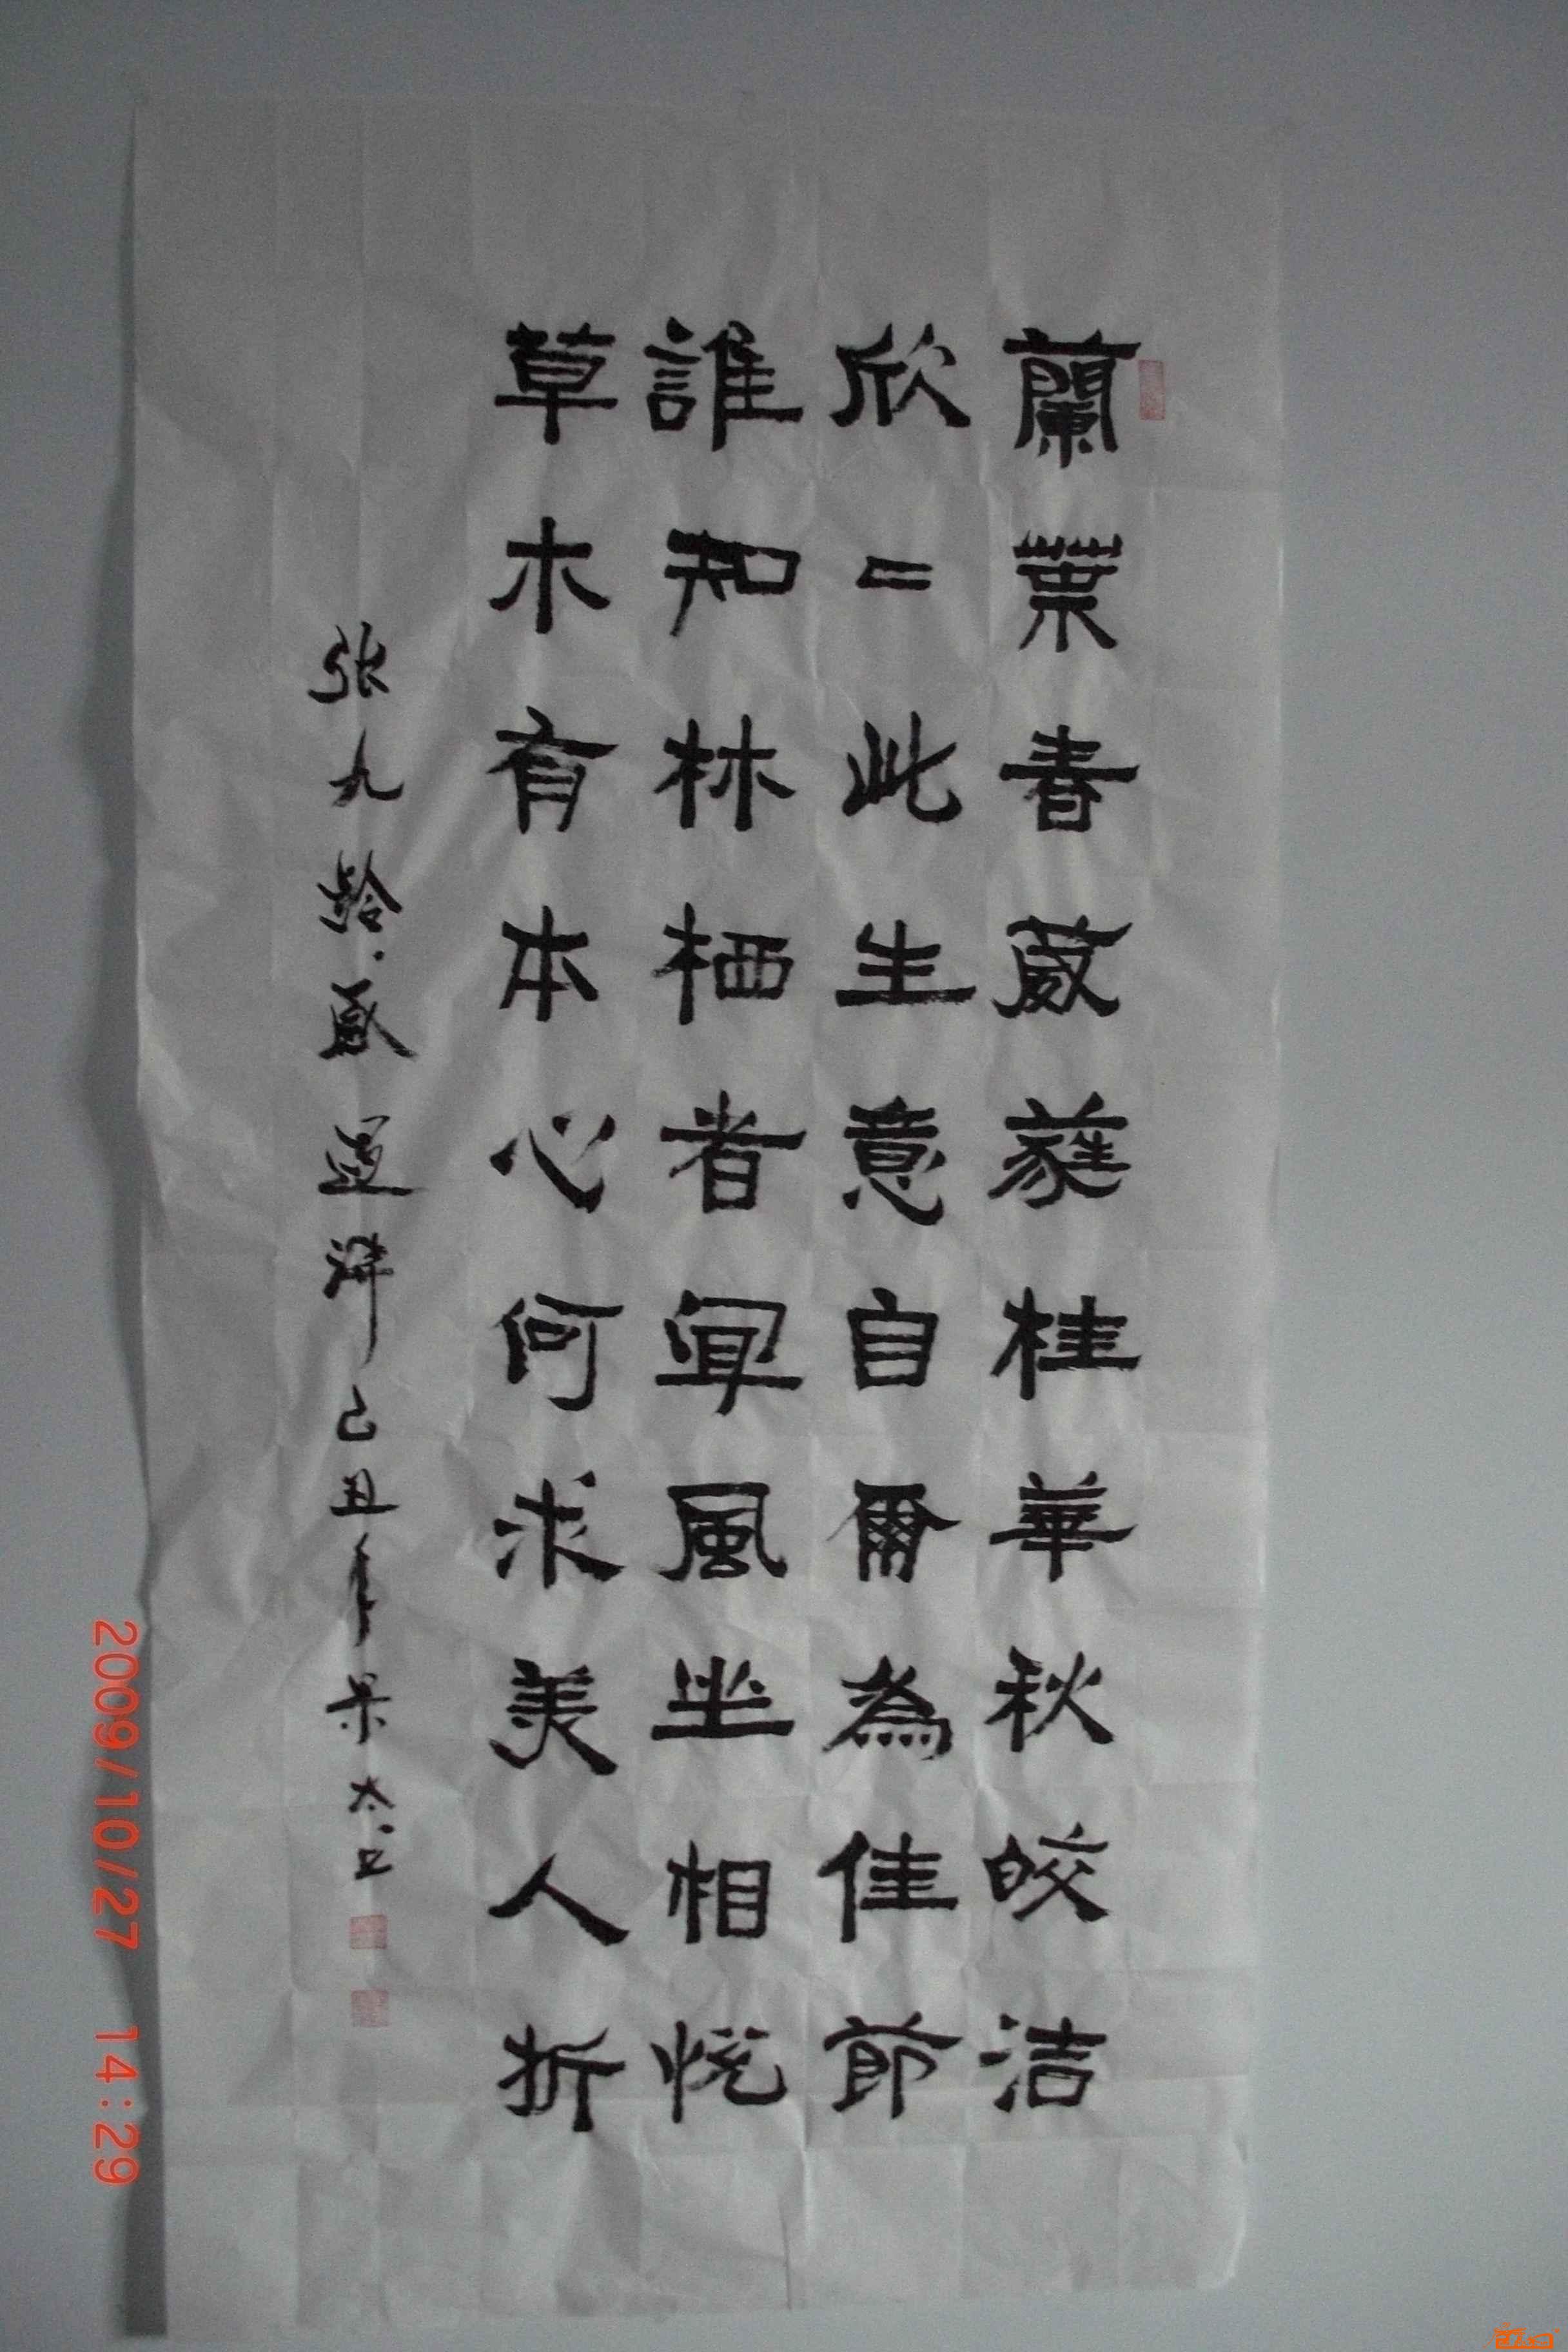 蘭葉春葳蕤桂華秋皎洁
欣二此生意自爾為佳節
誰知林栖者闻風坐相悦
草木有本心何求美人折
张九龄感遇 己丑年
2009/10/27 14:29